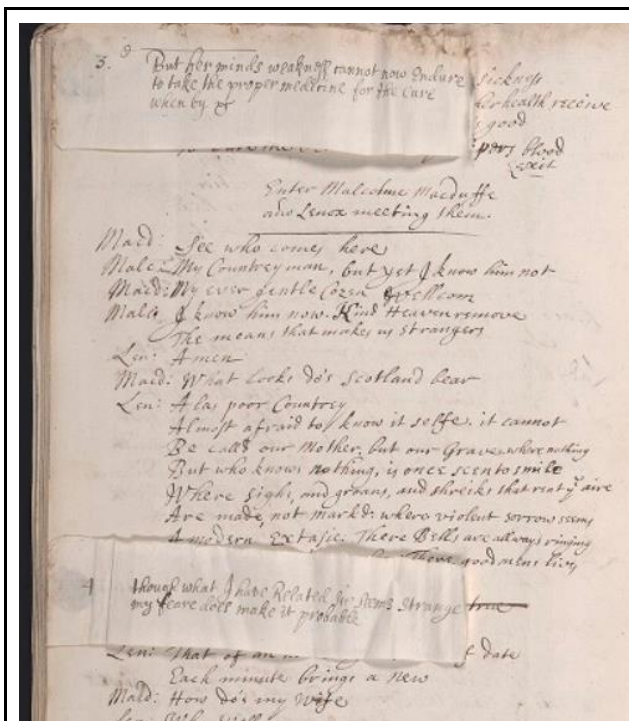 3. But her minds weakness cannot now Endure
to take the proper medicine for the Cure
when by
sickness
her health receive
good
blood
exit
Enter Malcolme Macduffe
and Lenox meeting them.
Macd: See who comes here
Malc: My Countreyman, but yet I know him not
Macd: My ever gentle Cozen Wellcom
Malc: I know him now. Kind Heaven remove
The means that makes us strangers
Len: Amen
Macd: What Looks do's Scotland bear
Len: Alas poor Countrey
Almost afraid to know it selfe. it cannot
Be calld our Mother, but our Grave, where nothing
But who knows nothing, is once seen to smile
Where sighs, and groans, and shreiks that rent ye aire
Are made, not markd: where violent sorrow seems
A modern Extasie: There Bells are allways ringing
There good mens lives
4 though what I have Related Seems strange true
my feare does make it probable
Len: That of an date
Each minute brings a new
Macd: How do's my Wife
Len: Why Well